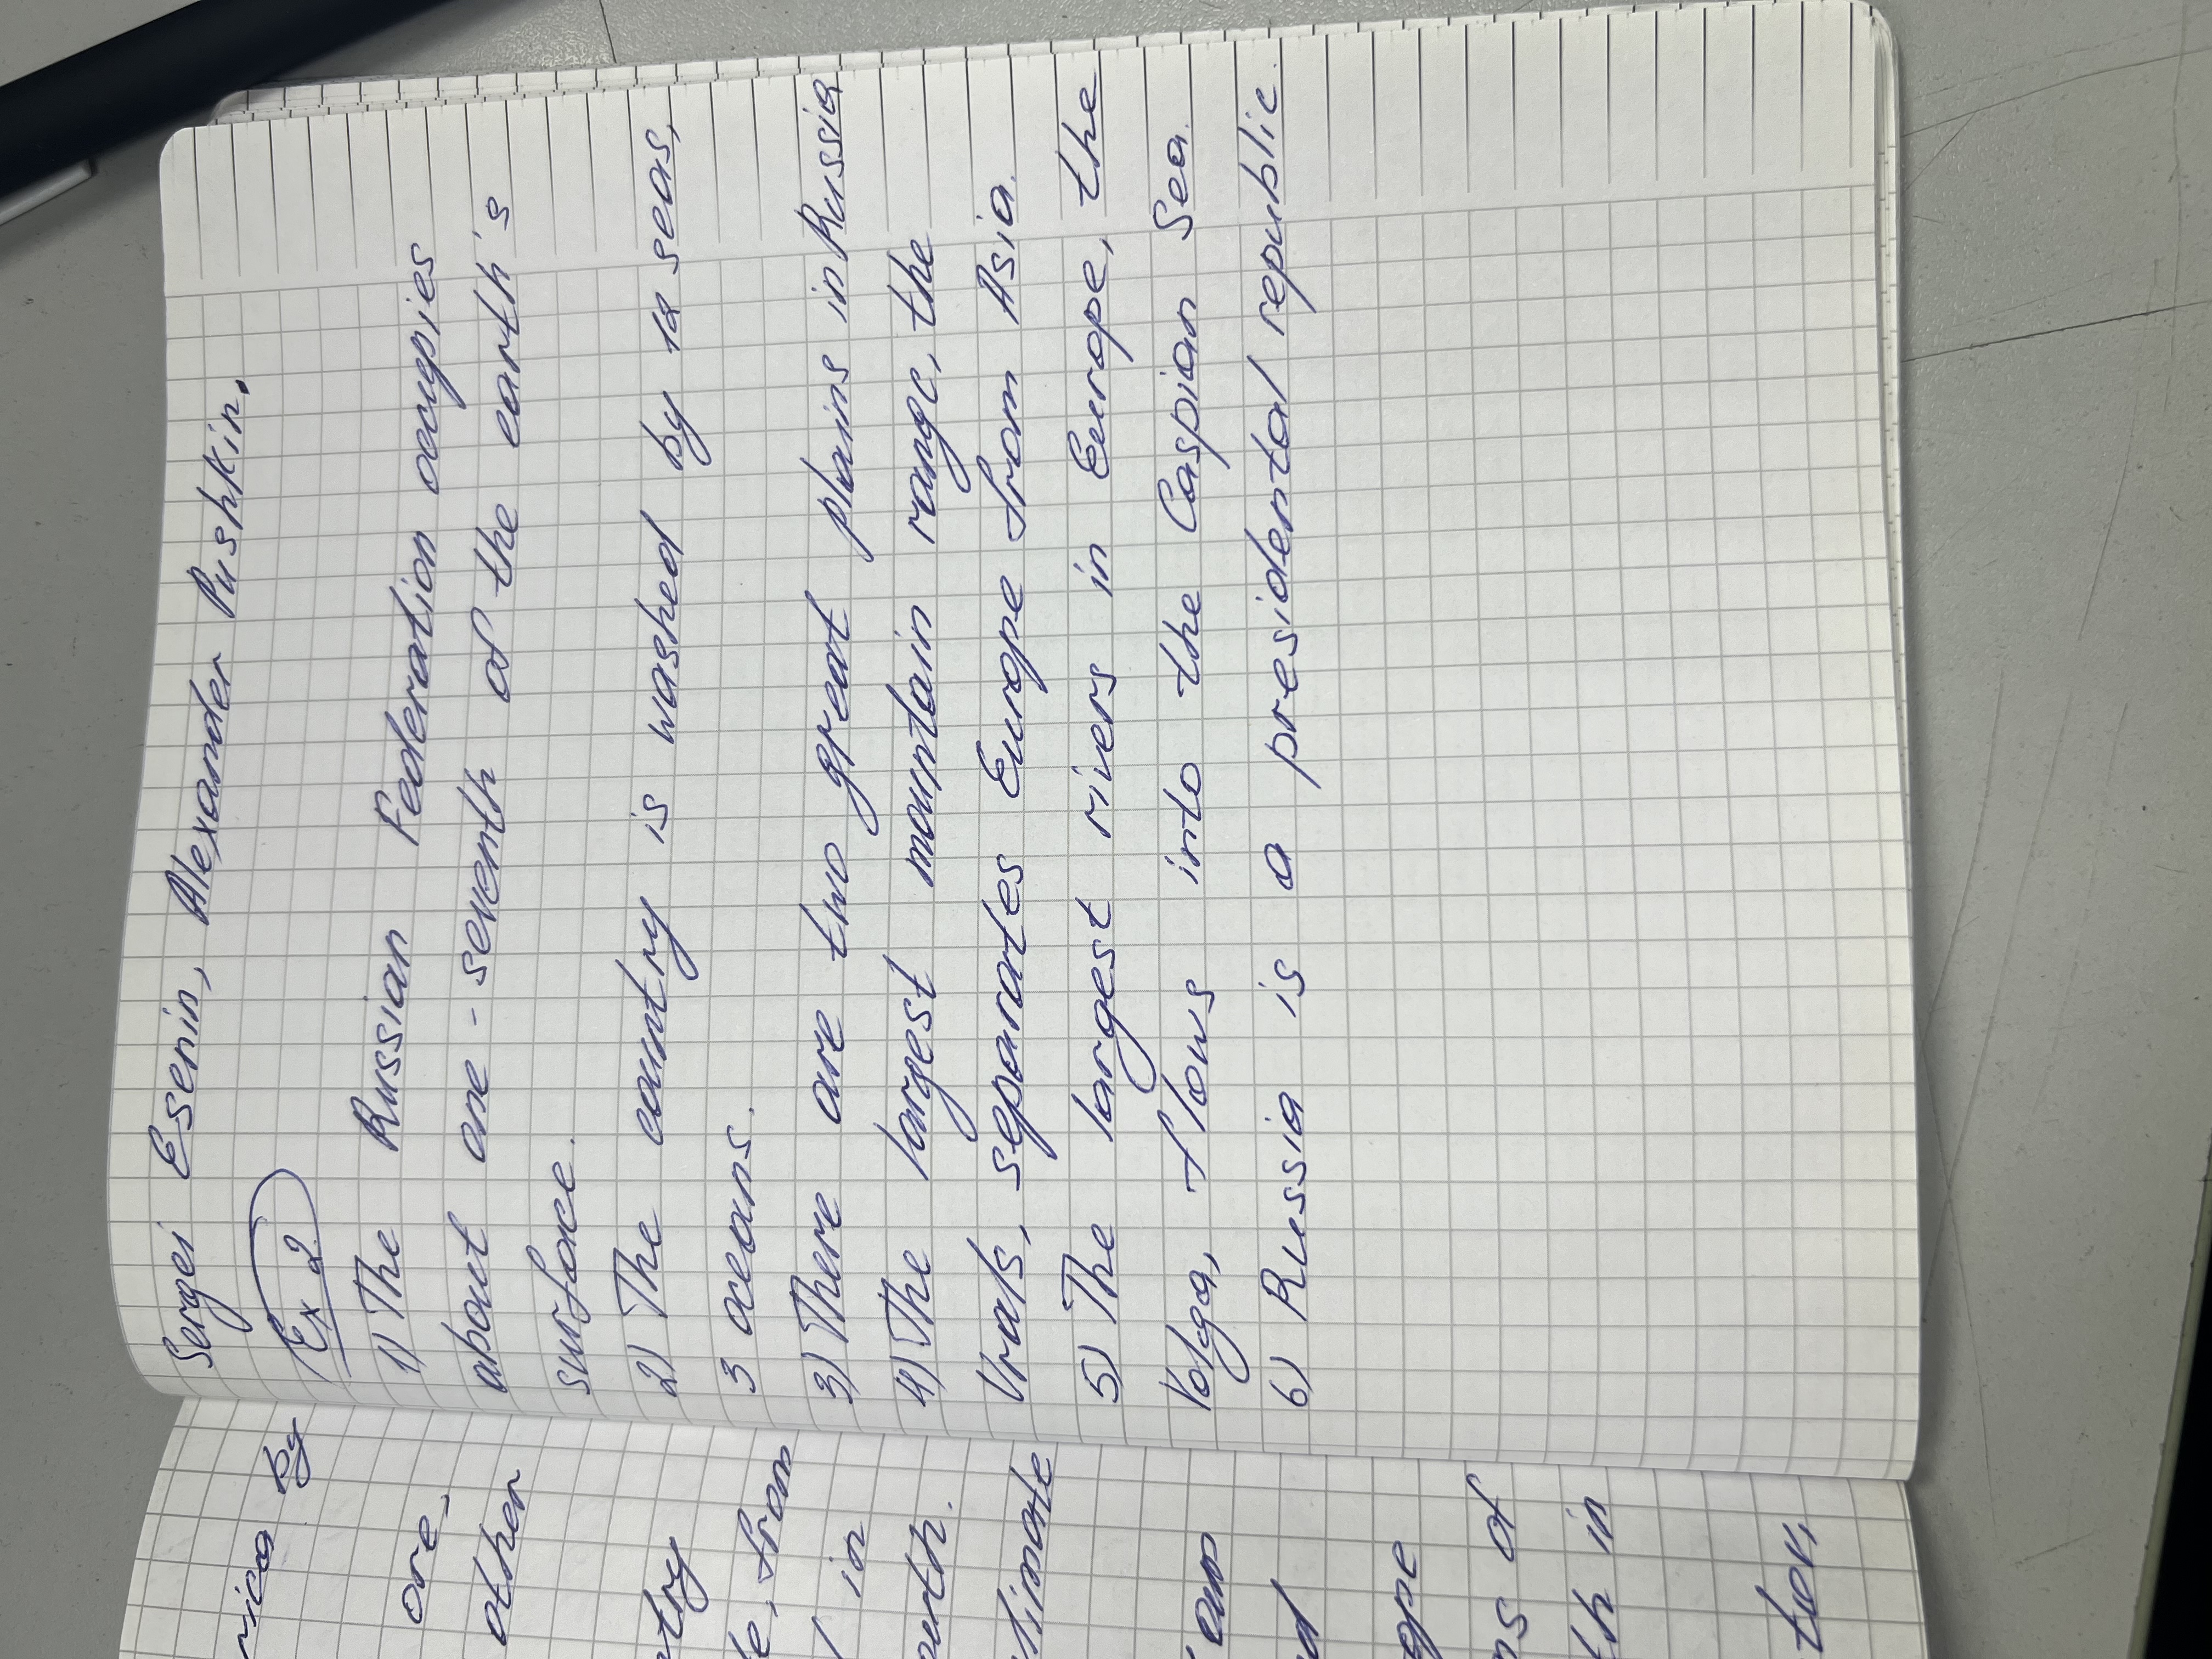 Sergei Esenin, Alexander Pushkin.
Ex 2
1) The Russian Federation occupies
about one-seventh of the earth's
surface.
2) The country is washed by 12 seas,
3 oceans.
3) There are two great plains in Russia
4) The largest mountain range, the
Urals, separates Europe from Asia.
5) The largest rivers in Europe, the
Volga, flows into the Caspian Sea.
6) Russia is a presidental republic.
by
ore,
other
from
in
earth.
of
th in